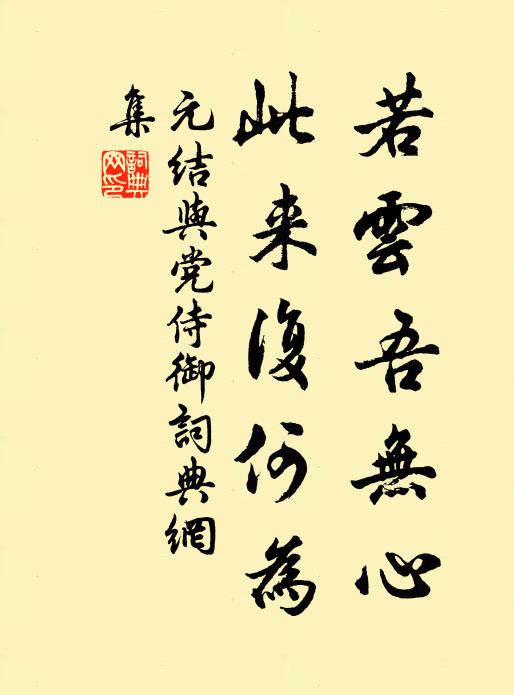 若雲吾無心
此来復何為
元结與党侍御詞典網
集
詞典網印